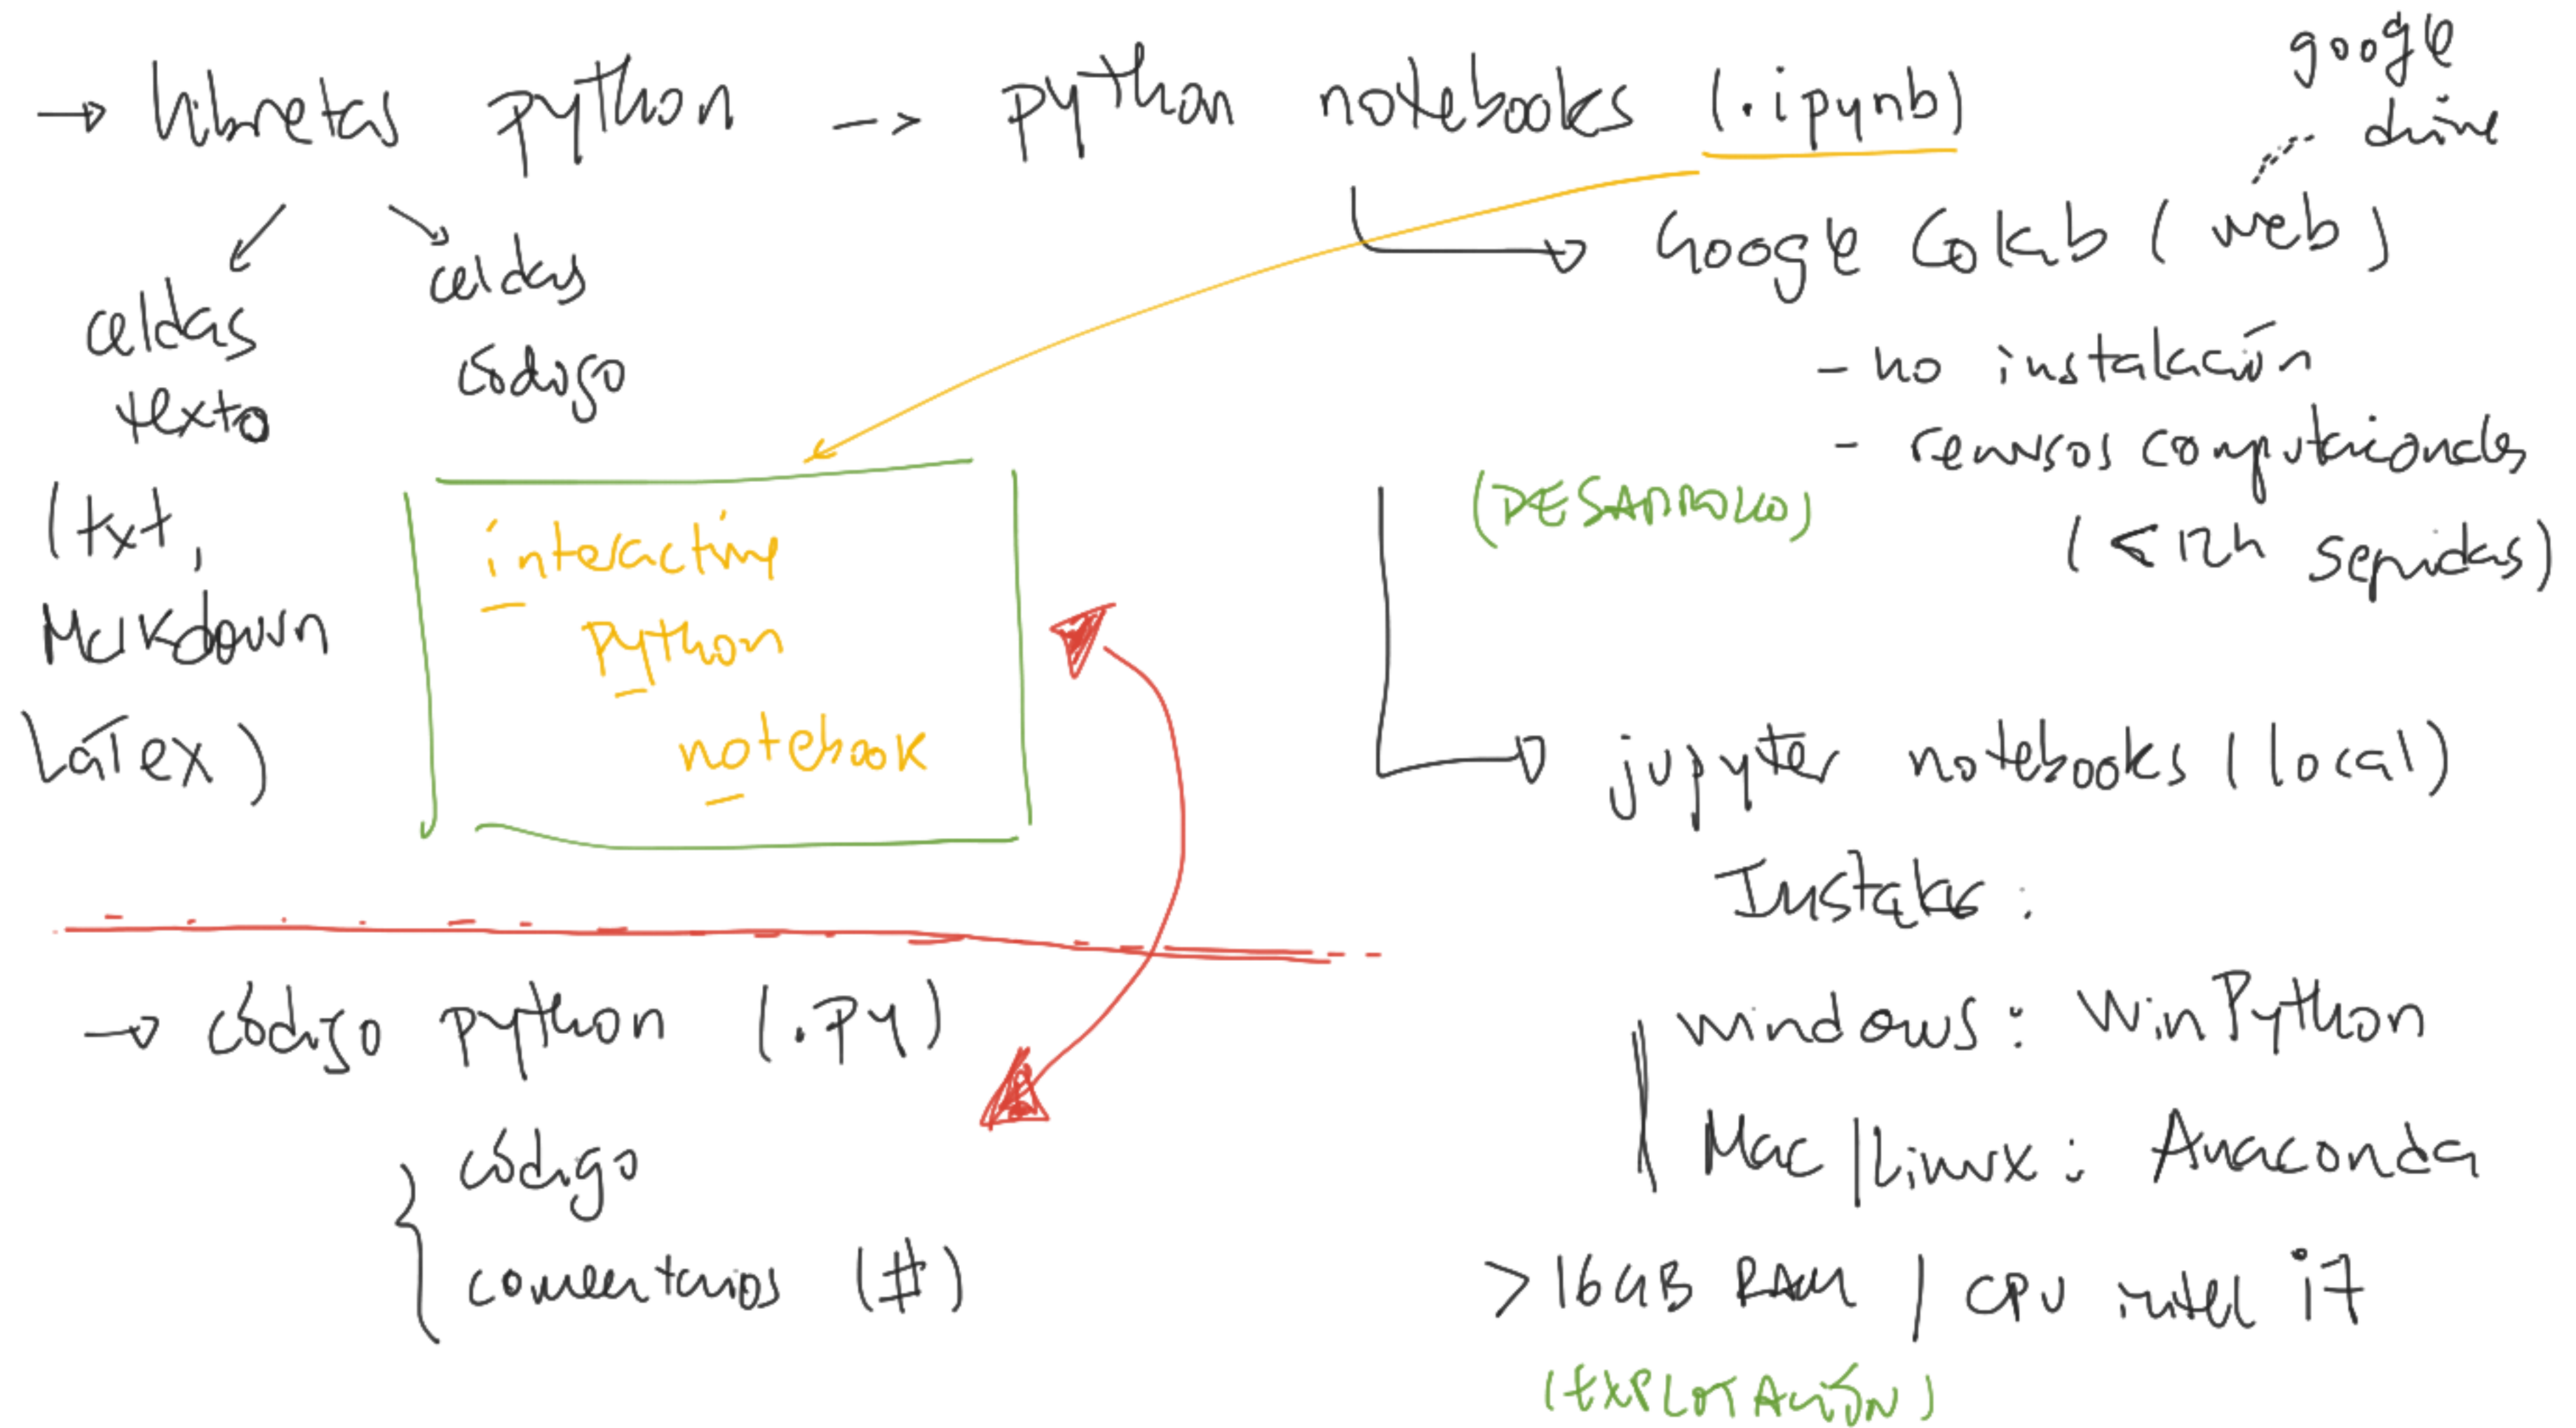 → libretas python --> python notebooks (.ipynb)
google
drive
celdas
texto
(txt,
Markdown
LaTex)
celdas
código
Google Colab (web)
- no instalación
- recursos computacionales
(<12h seguidas)
(DESARROLLO)
interactive
Python
notebook
jupyter notebooks (local)
Instalar:
windows: WinPython
Mac/Linux: Anaconda
>16GB RAM / CPU intel i7
(EXPLOTACIÓN)
→ código python (.py)
código
comentarios (#)